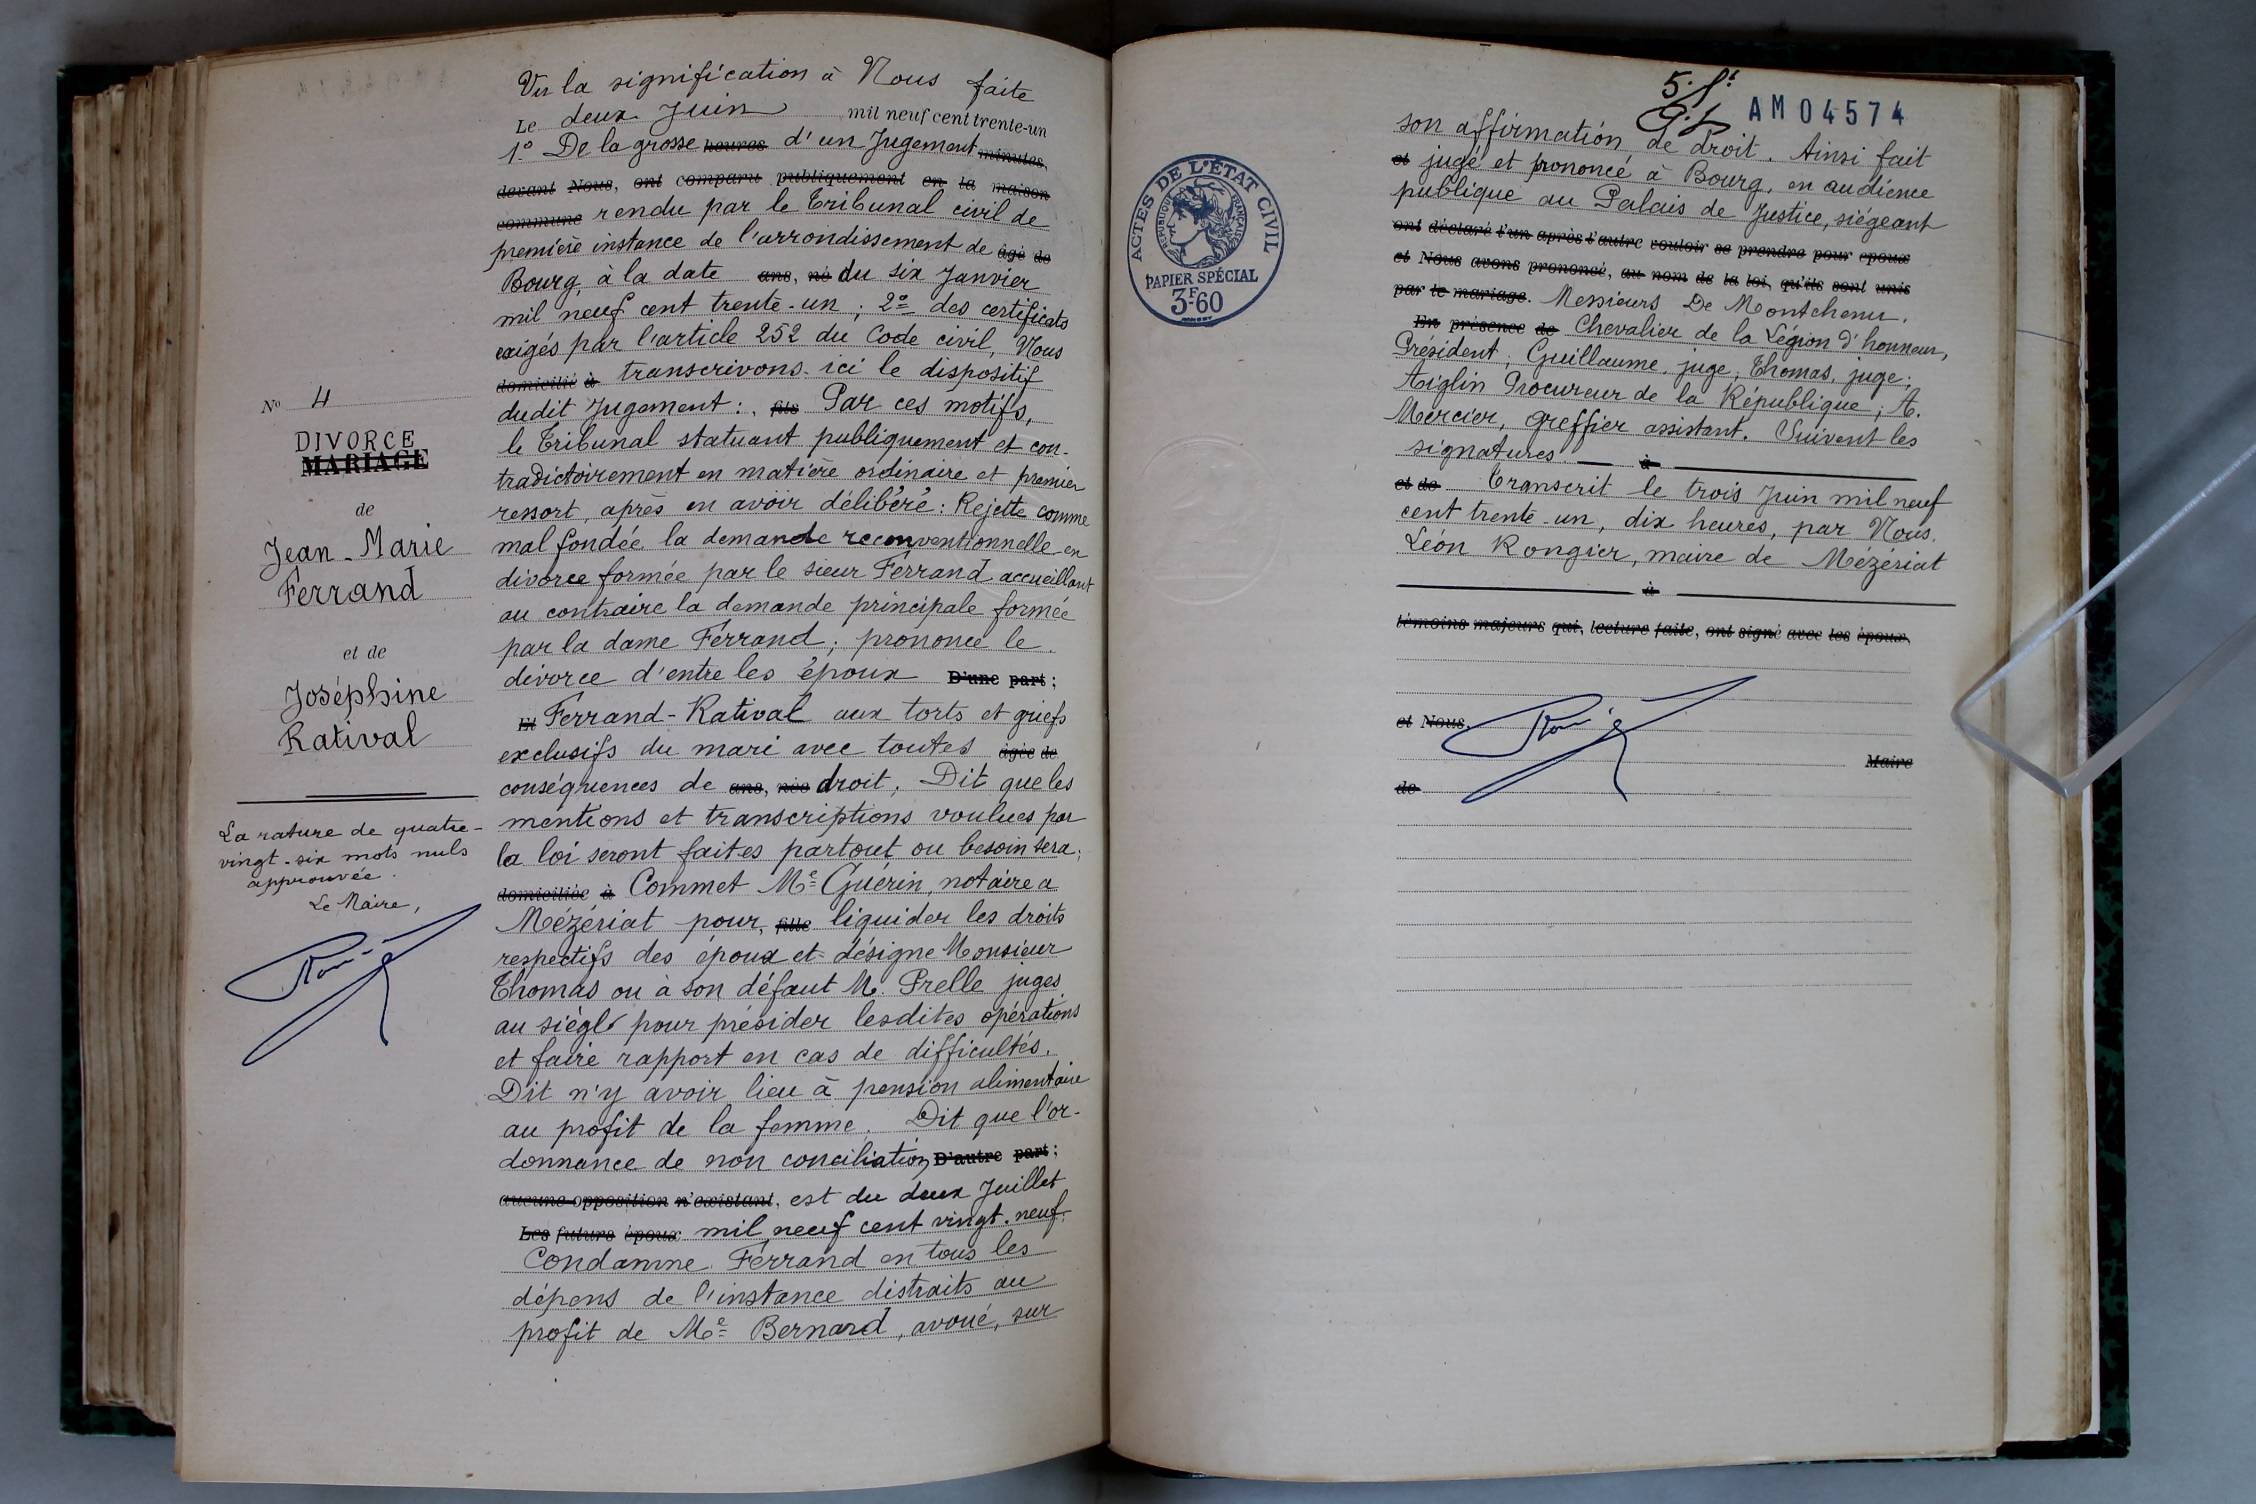 N° 4
DIVORCE
MARIAGE
de
Jean-Marie
Ferrand
et de
Joséphine
Rativat
La rature de quatre-
vingt-six mots nuls
approuvée.
Le Maire,
Vu la signification à Nous faite
Le deux Juin mil neuf cent trente-un
1° De la grosse heures d'un Jugement minutes,
devant Nous, ont comparu publiquement en la maison
commune rendu par le Tribunal civil de
première instance de l'arrondissement de âgé de
Bourg, à la date ans, né du six Janvier
mil neuf cent trente-un ; 2° des certificats
exigés par l'article 252 du Code civil, Nous
domicilié à transcrivons ici le dispositif
dudit Jugement : , fils Par ces motifs,
le Tribunal statuant publiquement et con-
tradictoirement en matière ordinaire et premier
ressort, après en avoir délibéré : Rejette comme
mal fondée la demande reconventionnelle en
divorce formée par le sieur Ferrand accueillant
au contraire la demande principale formée
par la dame Ferrand ; prononce le
divorce d'entre les époux D'une part ;
Et Ferrand-Rativat aux torts et griefs
exclusifs du mari avec toutes âgée de
conséquences de ans, née droit ; Dit que les
mentions et transcriptions voulues par
la loi seront faites partout ou besoin sera ;
domiciliée à Commet Me Guérin, notaire a
Mézériat pour, fille liquider les droits
respectifs des époux et désigne Monsieur
Thomas ou à son défaut M. Prelle juges
au siège pour présider lesdites opérations
et faire rapport en cas de difficultés.
Dit n'y avoir lieu à pension alimentaire
au profit de la femme. Dit que l'or-
donnance de non conciliation D'autre part ;
aucune opposition n'existant, est du deux Juillet
Les futurs époux mil neuf cent vingt-neuf.
Condamne Ferrand en tous les
dépens de l'instance distraits au
profit de Me Bernard, avoué, sur
AM04574
ACTES DE L'ÉTAT CIVIL
RÉPUBLIQUE FRANÇAISE
PAPIER SPÉCIAL
3F60
son affirmation de droit. Ainsi fait
et jugé et prononcé à Bourg, en audience
publique au Palais de Justice, siégeant
ont déclaré l'un après l'autre vouloir se prendre pour époux
et Nous avons prononcé, au nom de la loi, qu'ils sont unis
par le mariage. Messieurs De Montchenu,
En présence de Chevalier de la Légion d'honneur,
Président ; Guillaume juge ; Thomas, juge ;
Aiglin Procureur de la République ; A.
Mercier, greffier assistant. Suivent les
signatures. — à
et de Transcrit le trois Juin mil neuf
cent trente-un, dix heures, par Nous,
Léon Rongier, maire de Mézériat
à
témoins majeurs qui, lecture faite, ont signé avec les époux,
et Nous,
Maire
de